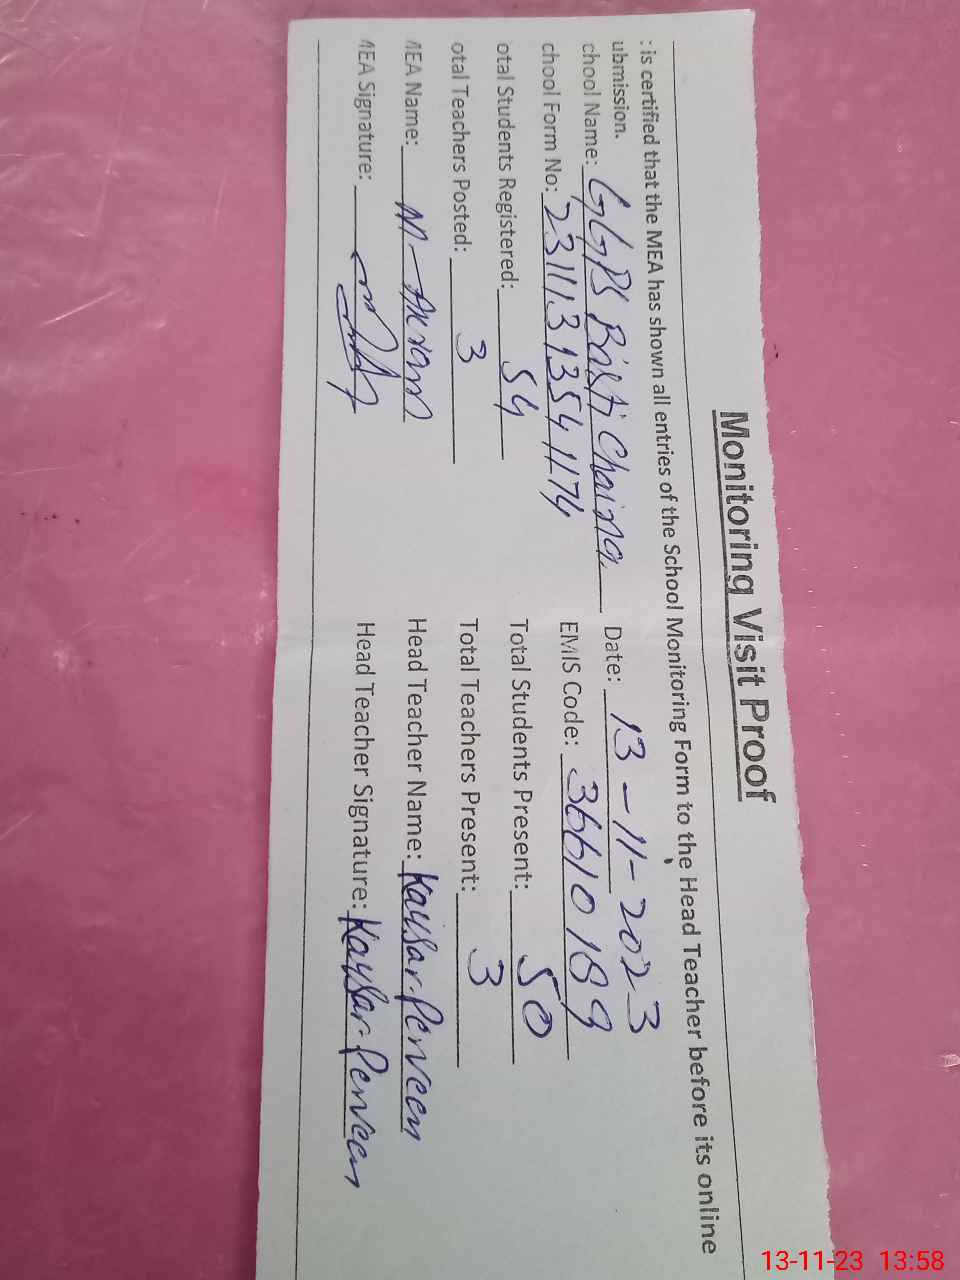 Monitoring Visit Proof
: is certified that the MEA has shown all entries of the School Monitoring Form to the Head Teacher before its online
ubmission.
chool Name: GGPS Basti Chaina Date: 13-11-2023
chool Form No: 23111313541174 EMIS Code: 36610189
otal Students Registered: 54 Total Students Present: 50
otal Teachers Posted: 3 Total Teachers Present: 3
MEA Name: M-Akram Head Teacher Name: Kausar Perveen
MEA Signature: Head Teacher Signature: Kausar Perveen
13-11-23 13:58